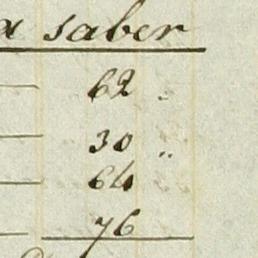 a saber
62
30 "
64
76